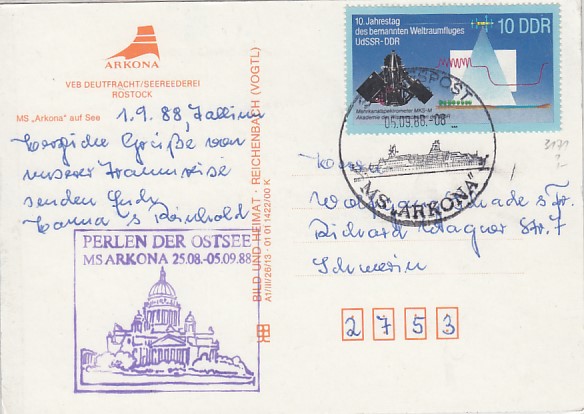 ARKONA
VEB DEUTFRACHT/SEEREEDEREI
ROSTOCK
MS „Arkona" auf See
1.9.88, Tallinn
Herzliche Grüße von
unserer Traumreise
senden Euch
Hanna u. Reinhold
PERLEN DER OSTSEE
MS ARKONA 25.08.-05.09.88
BILD UND HEIMAT · REICHENBACH (VOGTL)
A1/III/26/13 · 01 01 1422/00 K
10. Jahrestag
des bemannten Weltraumfluges
UdSSR-DDR
10 DDR
Multispektralspektrometer MKS-M
Akademie der
05.09.88.-08
MS „ARKONA"
3171
Richard Wagner Str. 7
Schwerin
2753